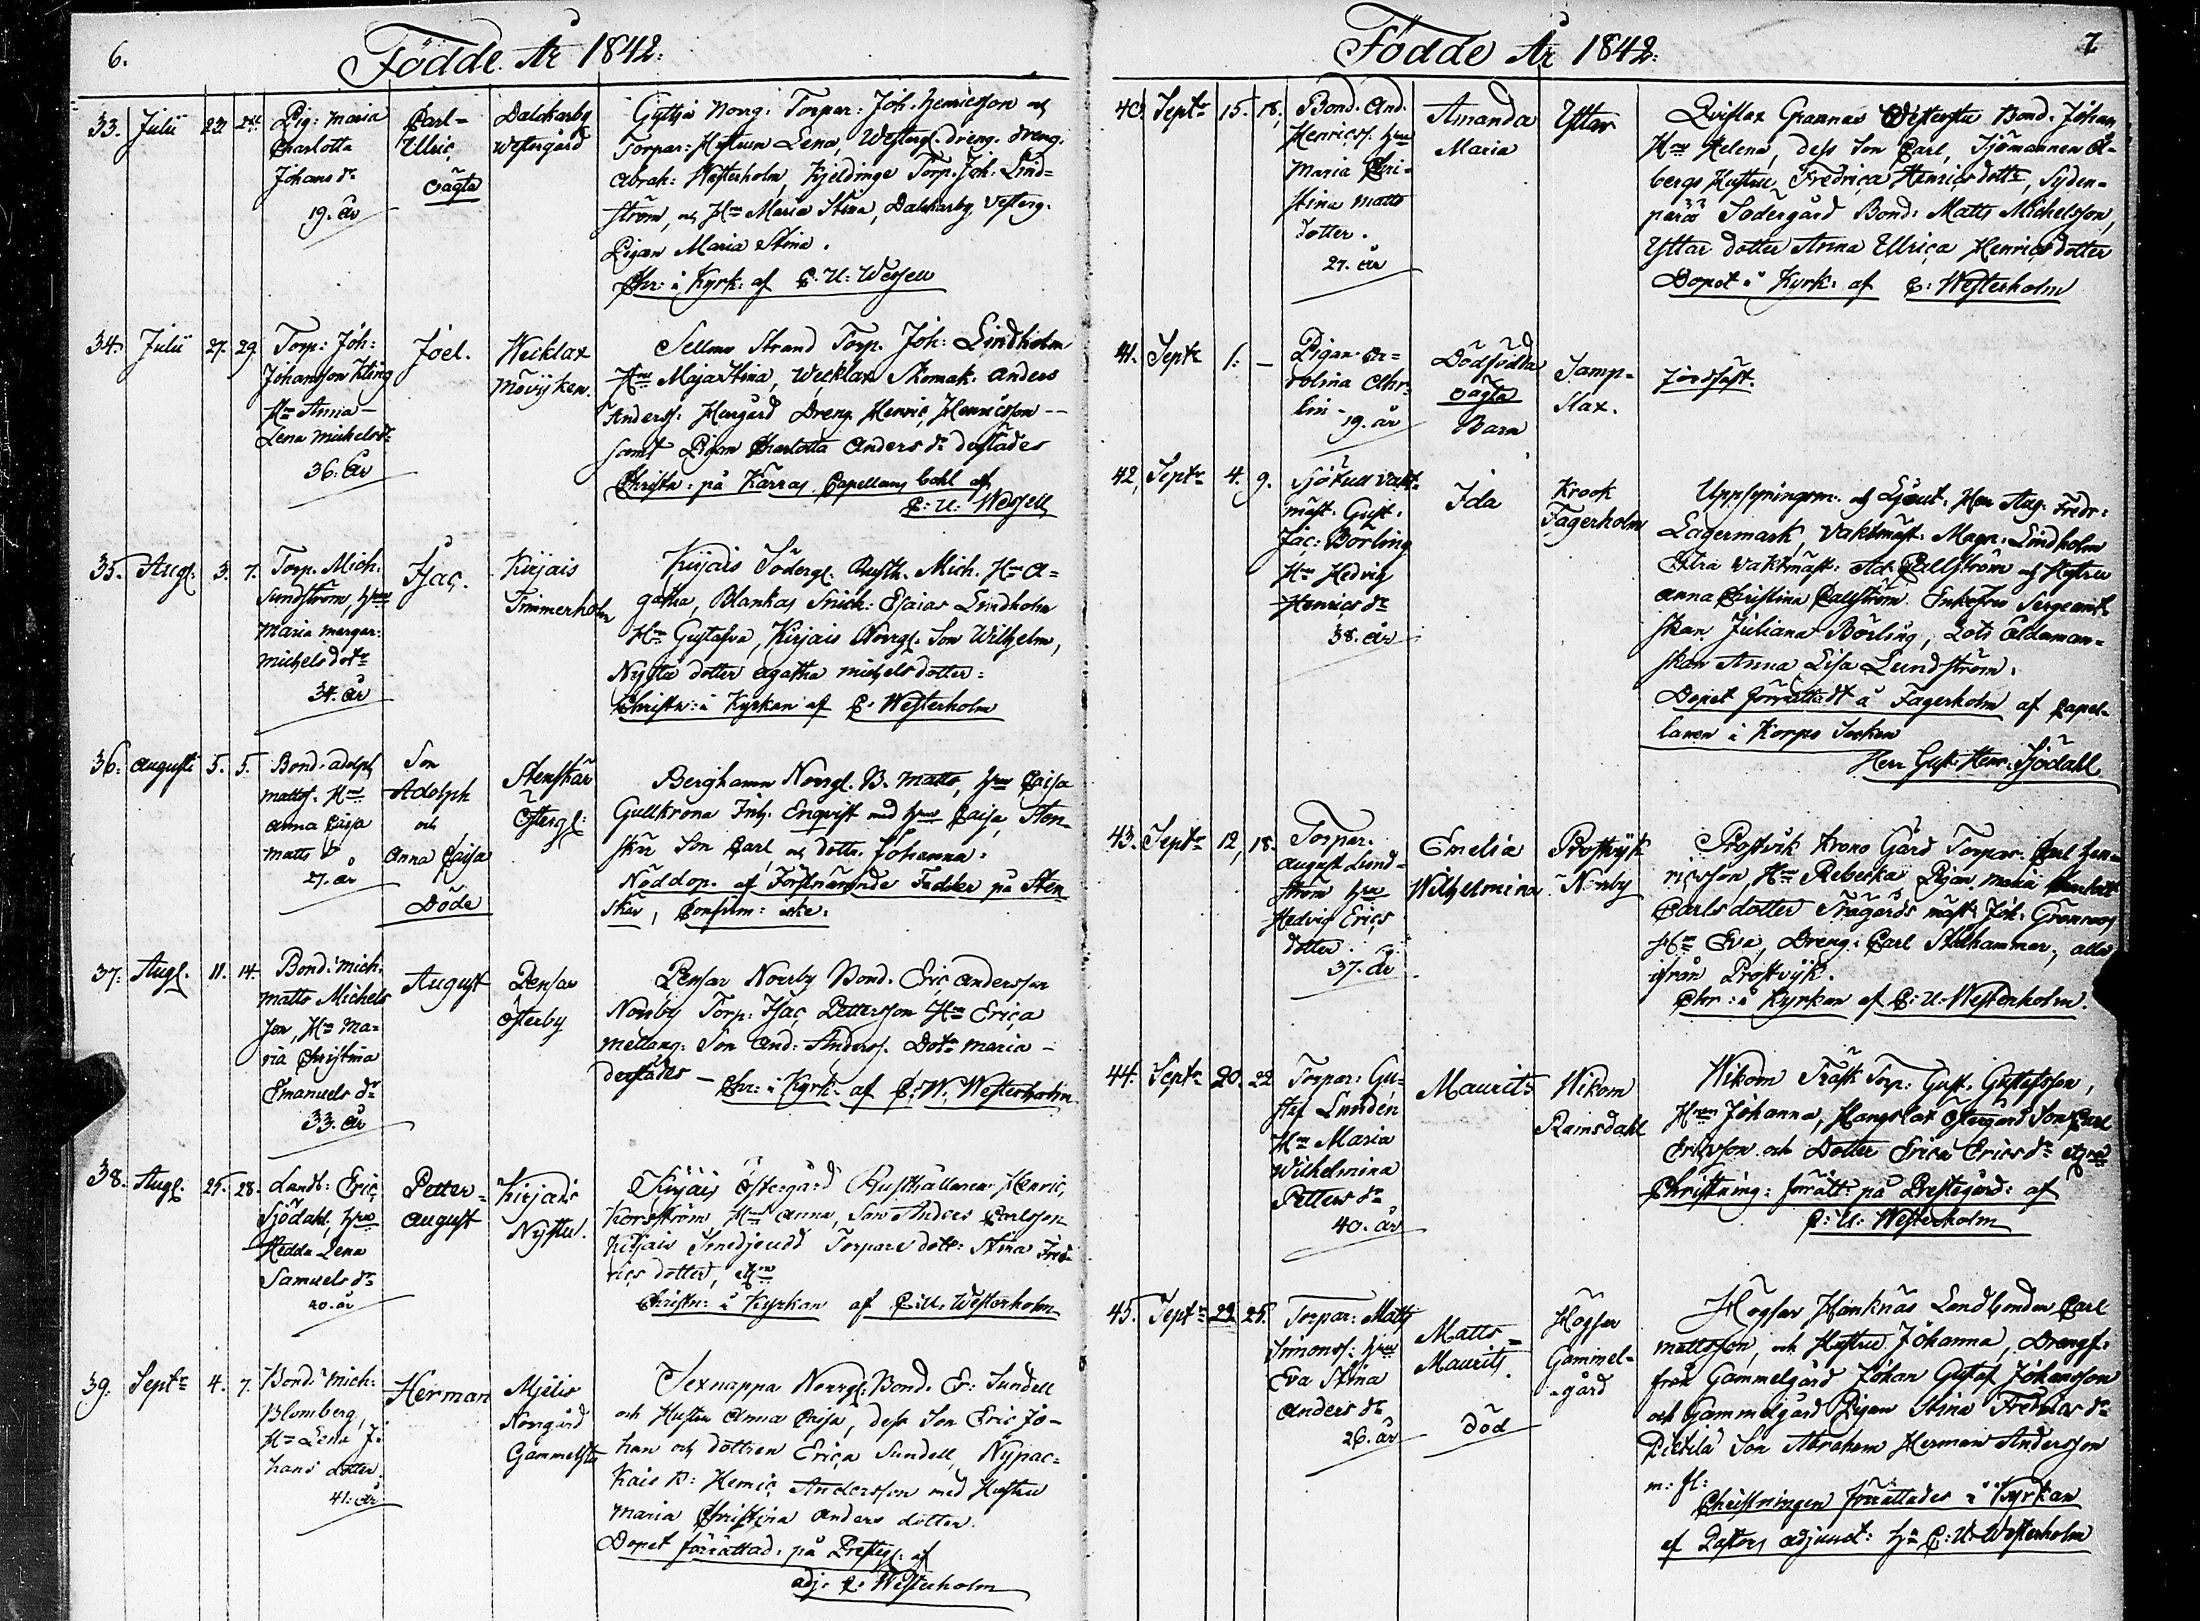 6.
Födde År 1842.
33. Julii 23 24
Pig: Maria
Charlotta
Johans dr
19. år
Carl=
Ulric
oägta
Dalckarby
Westergård
Gyttja Norrg: Torpar: Joh. Henricsson och
Torpar: Hustrun Lena, Westergl. dreng. dreng.
Abrah: Westerholm, Kjeldinge Torp. Joh. Lind=
ström, och Hru Maria Stina, Dalckarby Vesterg.
Pigan Maria Stina.
Chr: i Kyrk: af C. U: Wessell
34. Julii 27. 29
Torp: Joh:
Johansson Kling
Hr Anna
Lena Michelsdr
36. År
Joel.
Wecklax
Mövijken.
Sellmo Strand Torp. Joh: Lindholm
Hru Maja Stina, Wecklax Skomak. Anders
Anderss: Hergård Dreng Henric Henricsson --
samt Pigan Charlotta Anders dr derstädes
Christn: på Karras Capellans bohl af
C: U: Wessell
35. Augl. 3. 7.
Torp. Mich.
Sundström, Hru
Maria Margar:
Michelsdotr
34. år
Isac.
Kirjais
Timmerholm
Kirjais Södergl. Rusth. Mich. Hru A=
gatha, Blankas Snick: Esaias Lindholm
Hru Gustafva, Kirjais Norrgl. Son Wilhelm,
Nystu dotter Agatha Michelsdotter:
Christn: i Kyrkan af C. Westerholm
36. Augusti 5. 5.
Bond. Adolph
Mattss. Hru
Anna Caisa
Matts dr
27. år
Son
Adolph
och
Anna Caisa
Döde
Stenskär
Östergl:
Berghamn Norrgl. B. Matts, Hru Caisa
Gullkrona Inh. Enqvist med Hru Caisa, Sten-
skär Son Carl och dottr. Johanna:
Nöddop. af Förstnämnde Fadder på Sten
skär, Confirm: icke.
37. Augl. 11. 14.
Bond. Mich.
Matts Michels
son, Hr Ma=
ria Christina
Emanuels dr
33. år
August
Pensar
Österby
Pensar Norrby Bond. Eric Andersson
Norrby Torp: Isac Pettersson Hru Erica
Mellang: Son And: Anderss. Dotr Maria -
derstädes - Chr: i Kyrk. af C. W. Westerholm
38. Augl. 25. 28.
Landb: Eric
Sjödahl, Hru
Hedda Lena
Samuels dr
20. år
Petter=
August
Kirjais
Nystu.
Kirjais Östergård Rusthållaren Henric
Korsström Hru Anna, Son Anders Carlsson
Kirjais Smedjeudd Torpare dott: Stina Fred-
rics dotter,
Christn: i Kyrkan af C. U. Westerholm
39. Septr 4. 7.
Bond. Mich:
Blomberg,
Hr Lena Jo
hans dotter
41. år
Herman
Mjelis
Norrgård
Gammelstu
Sexnappa Norrgl. Bond. Er: Sundell
och Hustru Anna Caisa, dess Son Eric Jo-
han och dottren Erica Sundell, Nypac-
kais B: Henric Andersson med Hustru
Maria Christina Anders dotter.
Dopet förrättad: på Presteg: af
adj. C. Westerholm
Födde År 1842.
7
40. Septr 15. 18.
Bond. And.
Henricss. Hru
Maria Chri-
stina Matts
dotter.
27. år
Amanda
Maria
Yttar
Qvistlax Grannas Westerstu Bond. Johan
Hru Helena, dess Son Carl, Sjömannen Å-
bergs Hustru Fredrica Henricsdottr, Syden-
perä Södergård Bond: Matts Michelsson,
Yttar dotter Anna Ullrica Henricsdotter
Dopet i Kyrk: af C: Westerholm
41. Septr 1: -
Pigan Ca=
rolina Ahr-
lin
19. år
Dödfödda
oägta
Barn
Samp-
slax.
jordfäst.
42. Septr 4. 9.
Sjötull Vakt-
mäst. Gust.
Jac: Börling
Hr Hedvig
Henrics dr
38. år
Ida
Krook
Fagerholm
Uppsyningsm. och Löjtnt. Herr Aug. Fredr:
Lagermark, Vaktmäst. Magn. Lindholm
Extra Vaktmäst: Ad. Callström och Hustru
Anna Christina Callström. Enkefru Sergeant
skan Juliana Börling, Lots Ålderman-
skan Anna Lisa Lundström.
Dopet förrättadt å Fagerholm af Capel-
lanen i Korpo Socken
Herr Gust. Henr. Sjödahl
43. Septr 12, 18.
Torpar.
August Lind-
ström Hru
Hedvig Erics
dotter
37. år
Emelia
Wilhelmina
Prostvijk
Norrby
Prostvik Krono Gård Torpar. Carl Hen-
ricsson, Hru Rebecka Pigan Maria
Carlsdotter Trägårds mäst. Joh. Grönroos
Hru Eva, Dreng: Carl Stålhammar, alla
ifrån Prostvijk.
Chr: i Kyrkan af C: U. Westerholm.
44. Septr 20. 22
Torpar: Gu=
staf Lundén
Hru Maria
Wilhelmina
Petters dr
40. år
Maurits
Wikom
Ramsdahl
Wikom Träsk Torp: Gust. Gustafsson,
Hru Johanna, Mangslax Östergård Son Carl
Ericsson och Dotter Erica Erics dr
Christning: förrätt: på Prestegård: af
C: U: Westerholm
45. Septr 22 25.
Torpar: Matts
Simonss: Hru
Eva Stina
Anders dr
26. år
Matts=
Maurits.
död
Högsar
Gammel-
-gård
Högsar Hanknäs Landbonden Carl
Mattsson, och Hustru Johanna, Drengs:
från Gammelgård Johan Gustaf Johansson
och Gammelgård Pigan Stina Fredrics dr
Pickilä Son Abraham Herman Andersson
m: fl:
Christningen förrättades i Kyrkan
af Pastors adjunct: Hr C: U. Westerholm